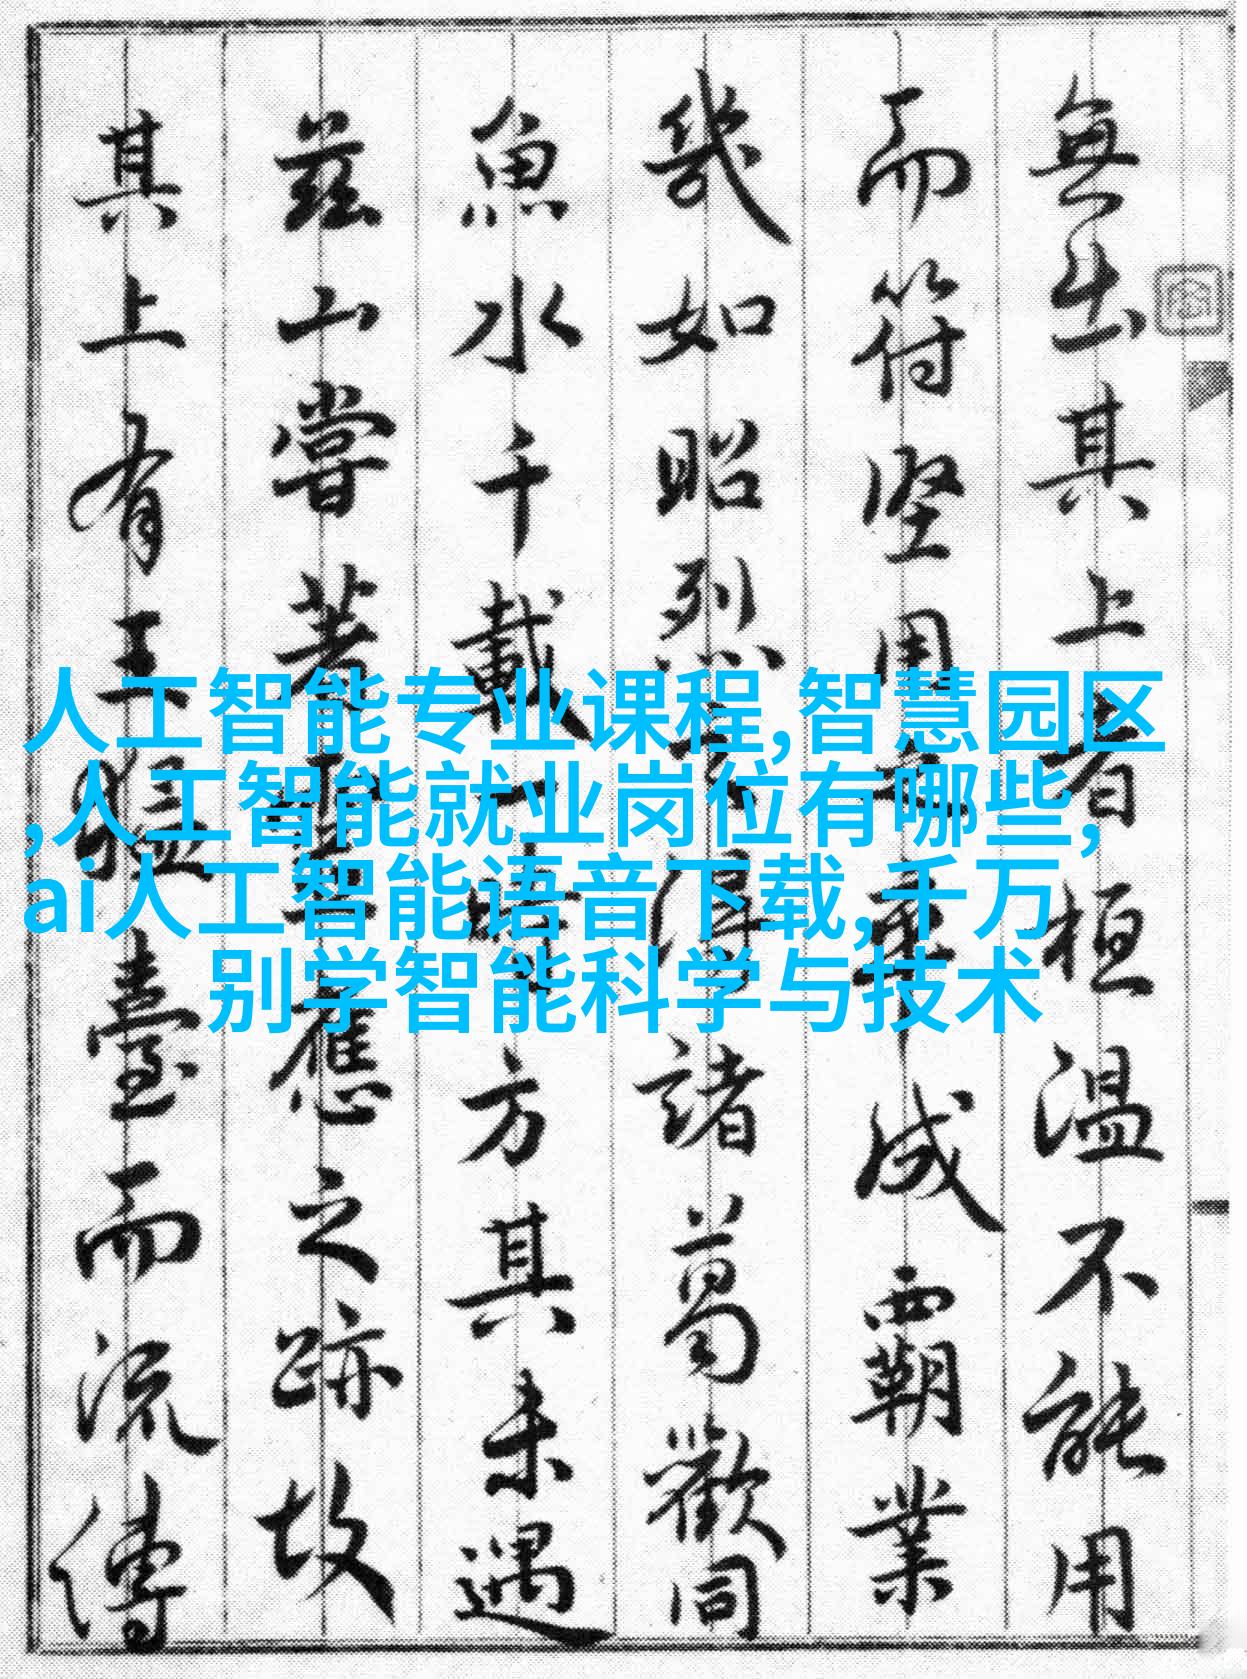 無出其上者桓温不能用
而符坚用成霸業
㡬如昭烈之得諸葛歡同
魚水千載一時方其未遇
兹山嘗著應之跡故
其上有王猛臺而流傳
人工智能专业课程,智慧园区
,人工智能就业岗位有哪些,
ai人工智能语音下载,千万
别学智能科学与技术